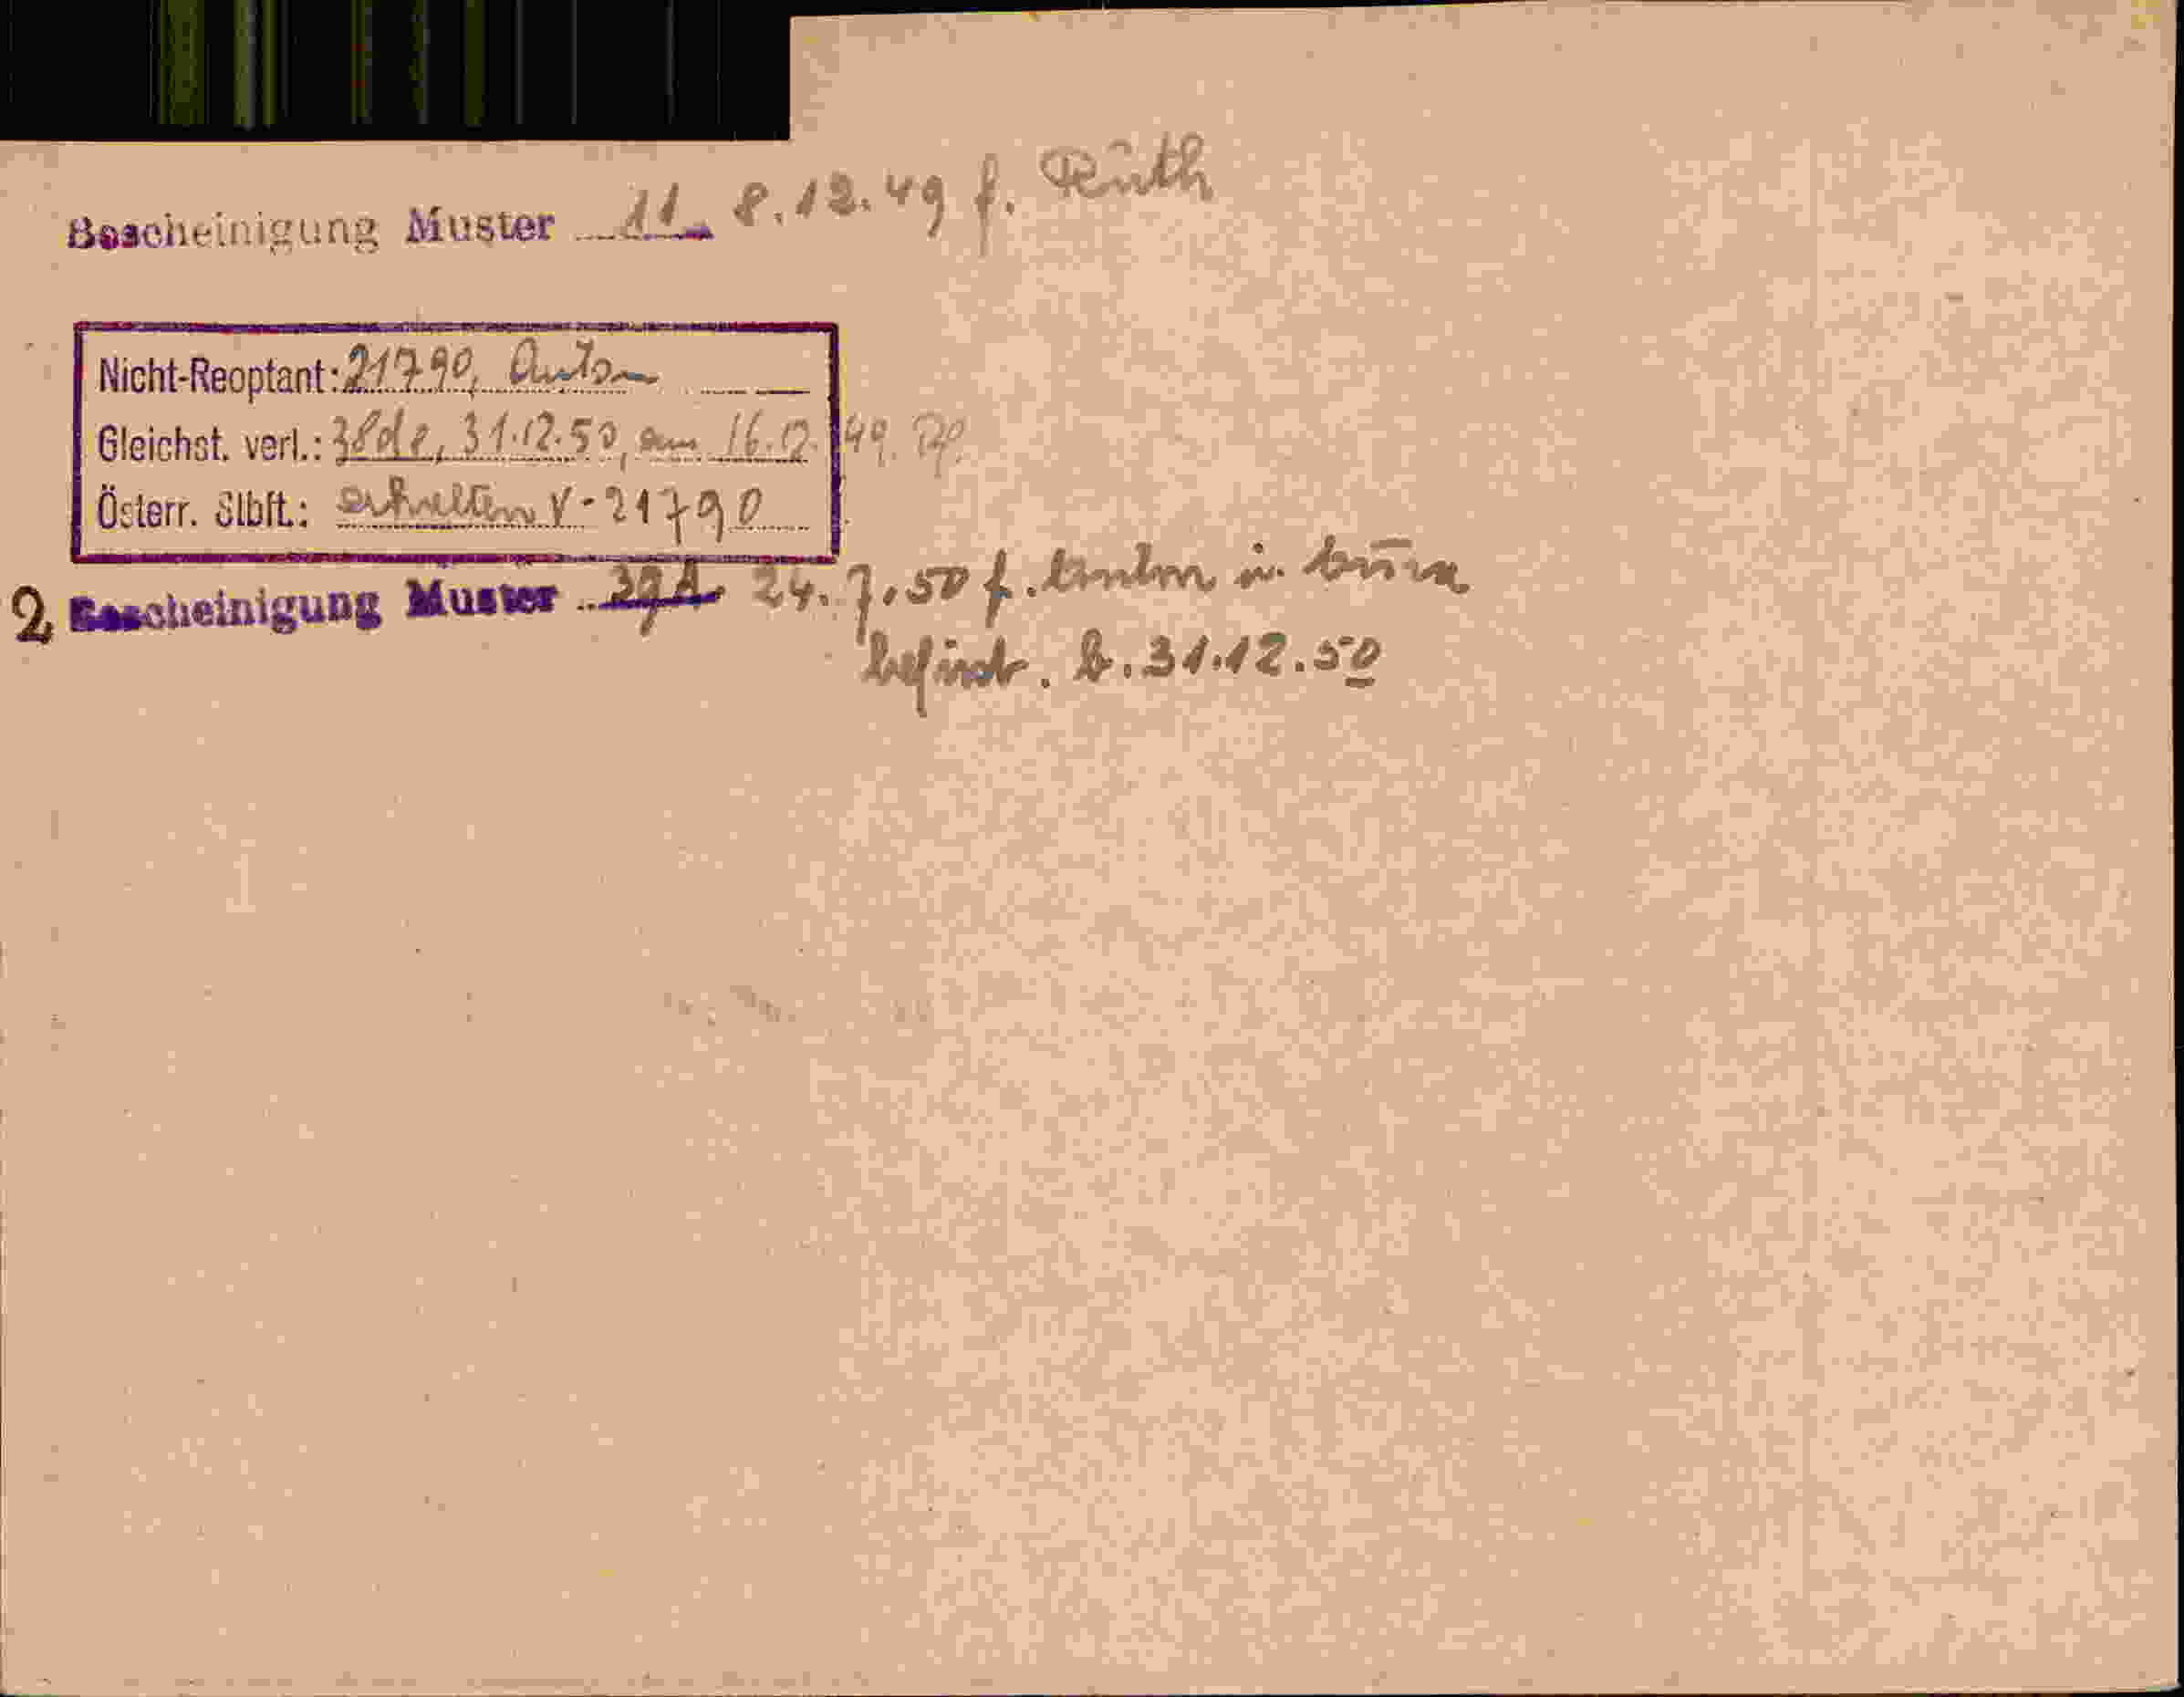 Bescheinigung Muster 11. 8.12.49 f. Ruth
Nicht-Reoptant: 21790, Anton
Gleichst. verl.: 38de, 31.12.50, am 16.12.49.
Österr. Stbft.: erhalten V-21790
2 Bescheinigung Muster 39A. 24.7.50 f. Anton u.
befrist. b. 31.12.50